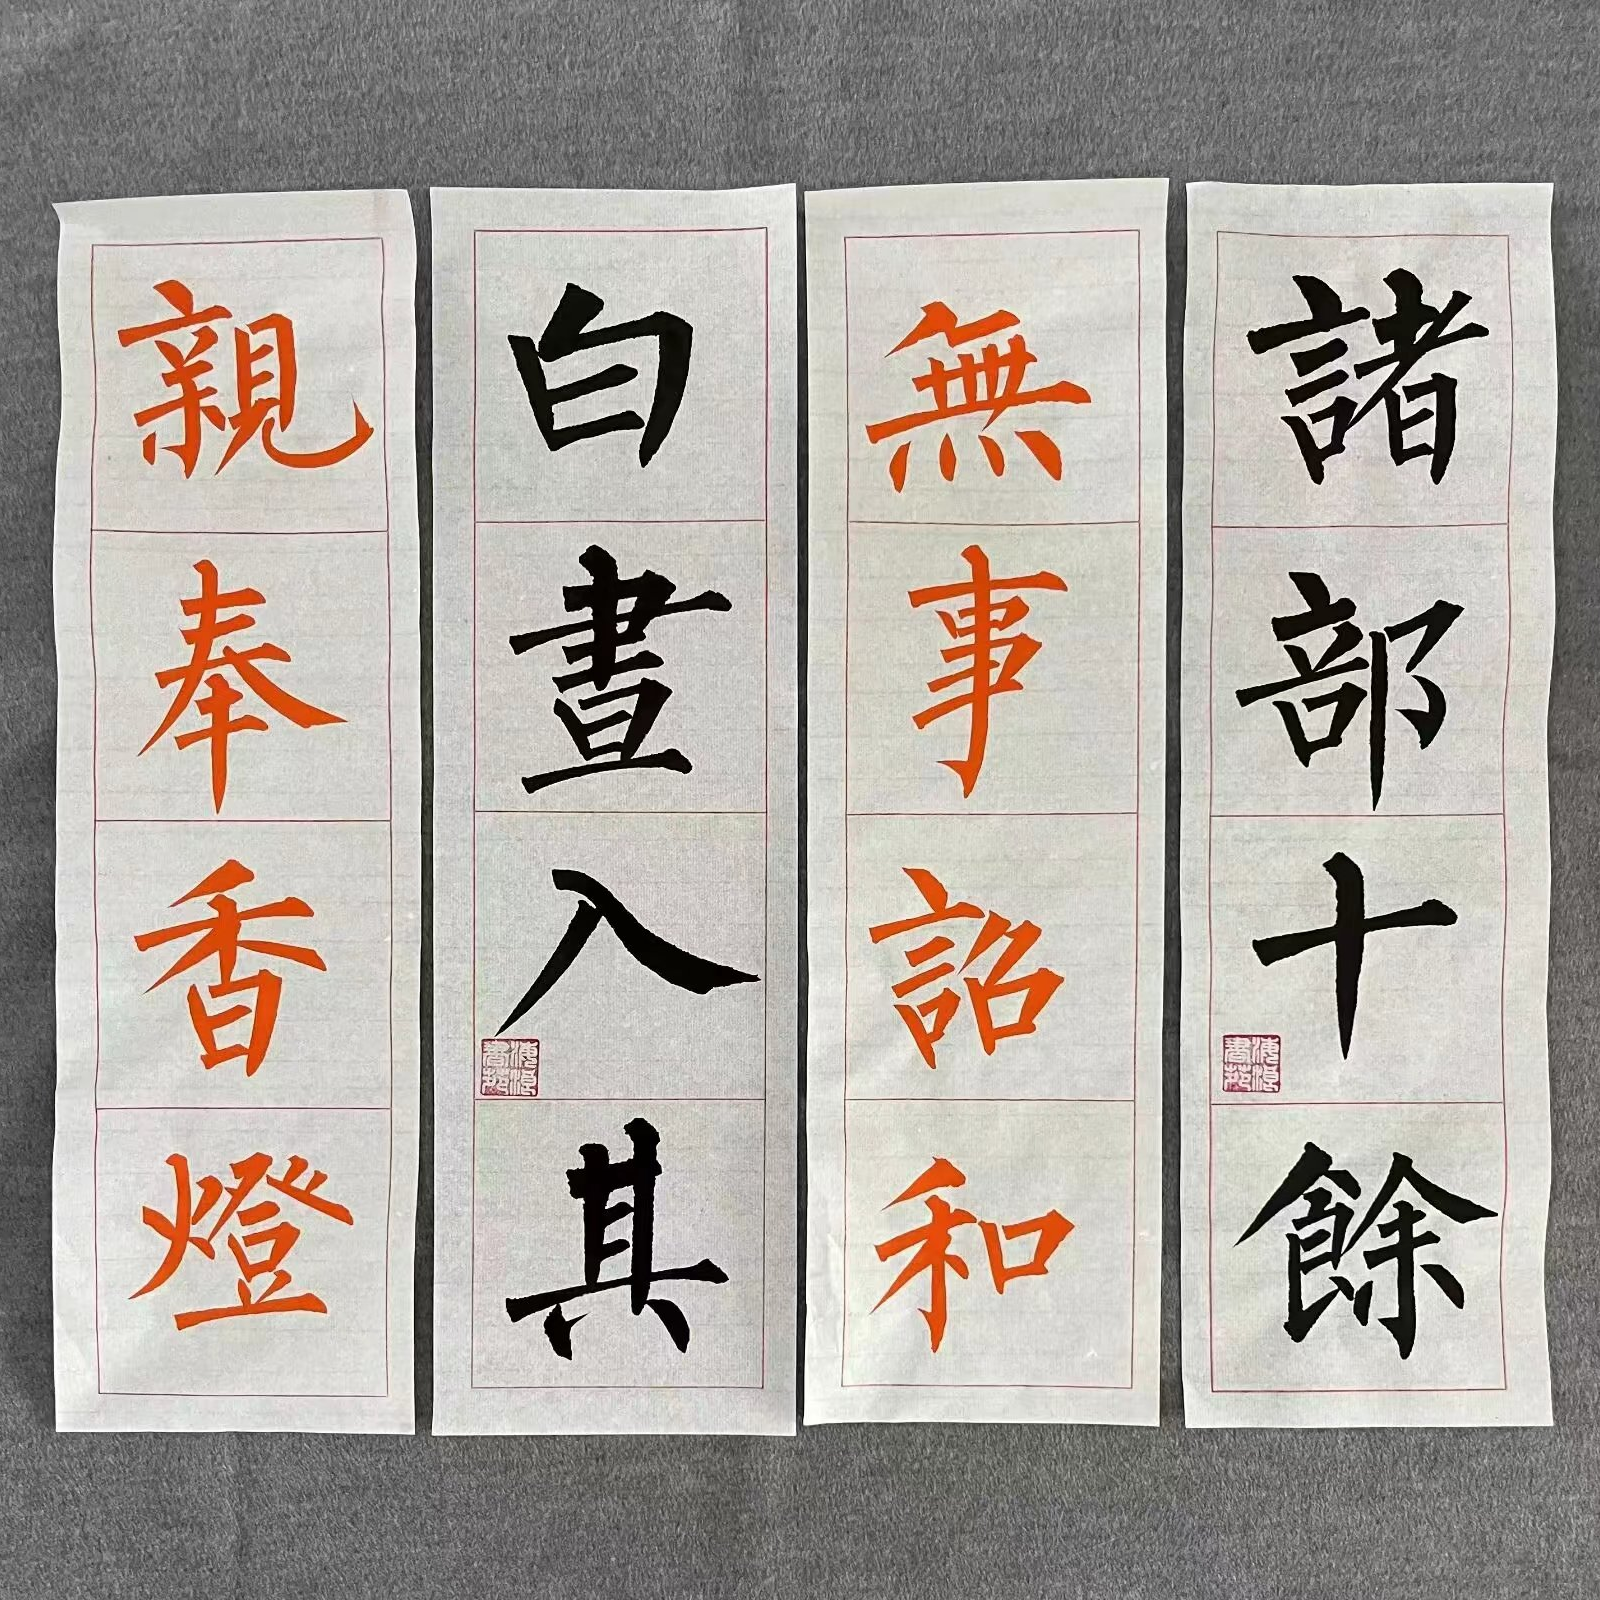 諸部十餘
無事詔和
白晝入其
親奉香燈